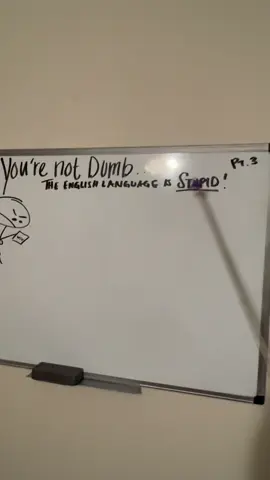 You're not Dumb...
Pt. 3
THE ENGLISH LANGUAGE IS STUPID!